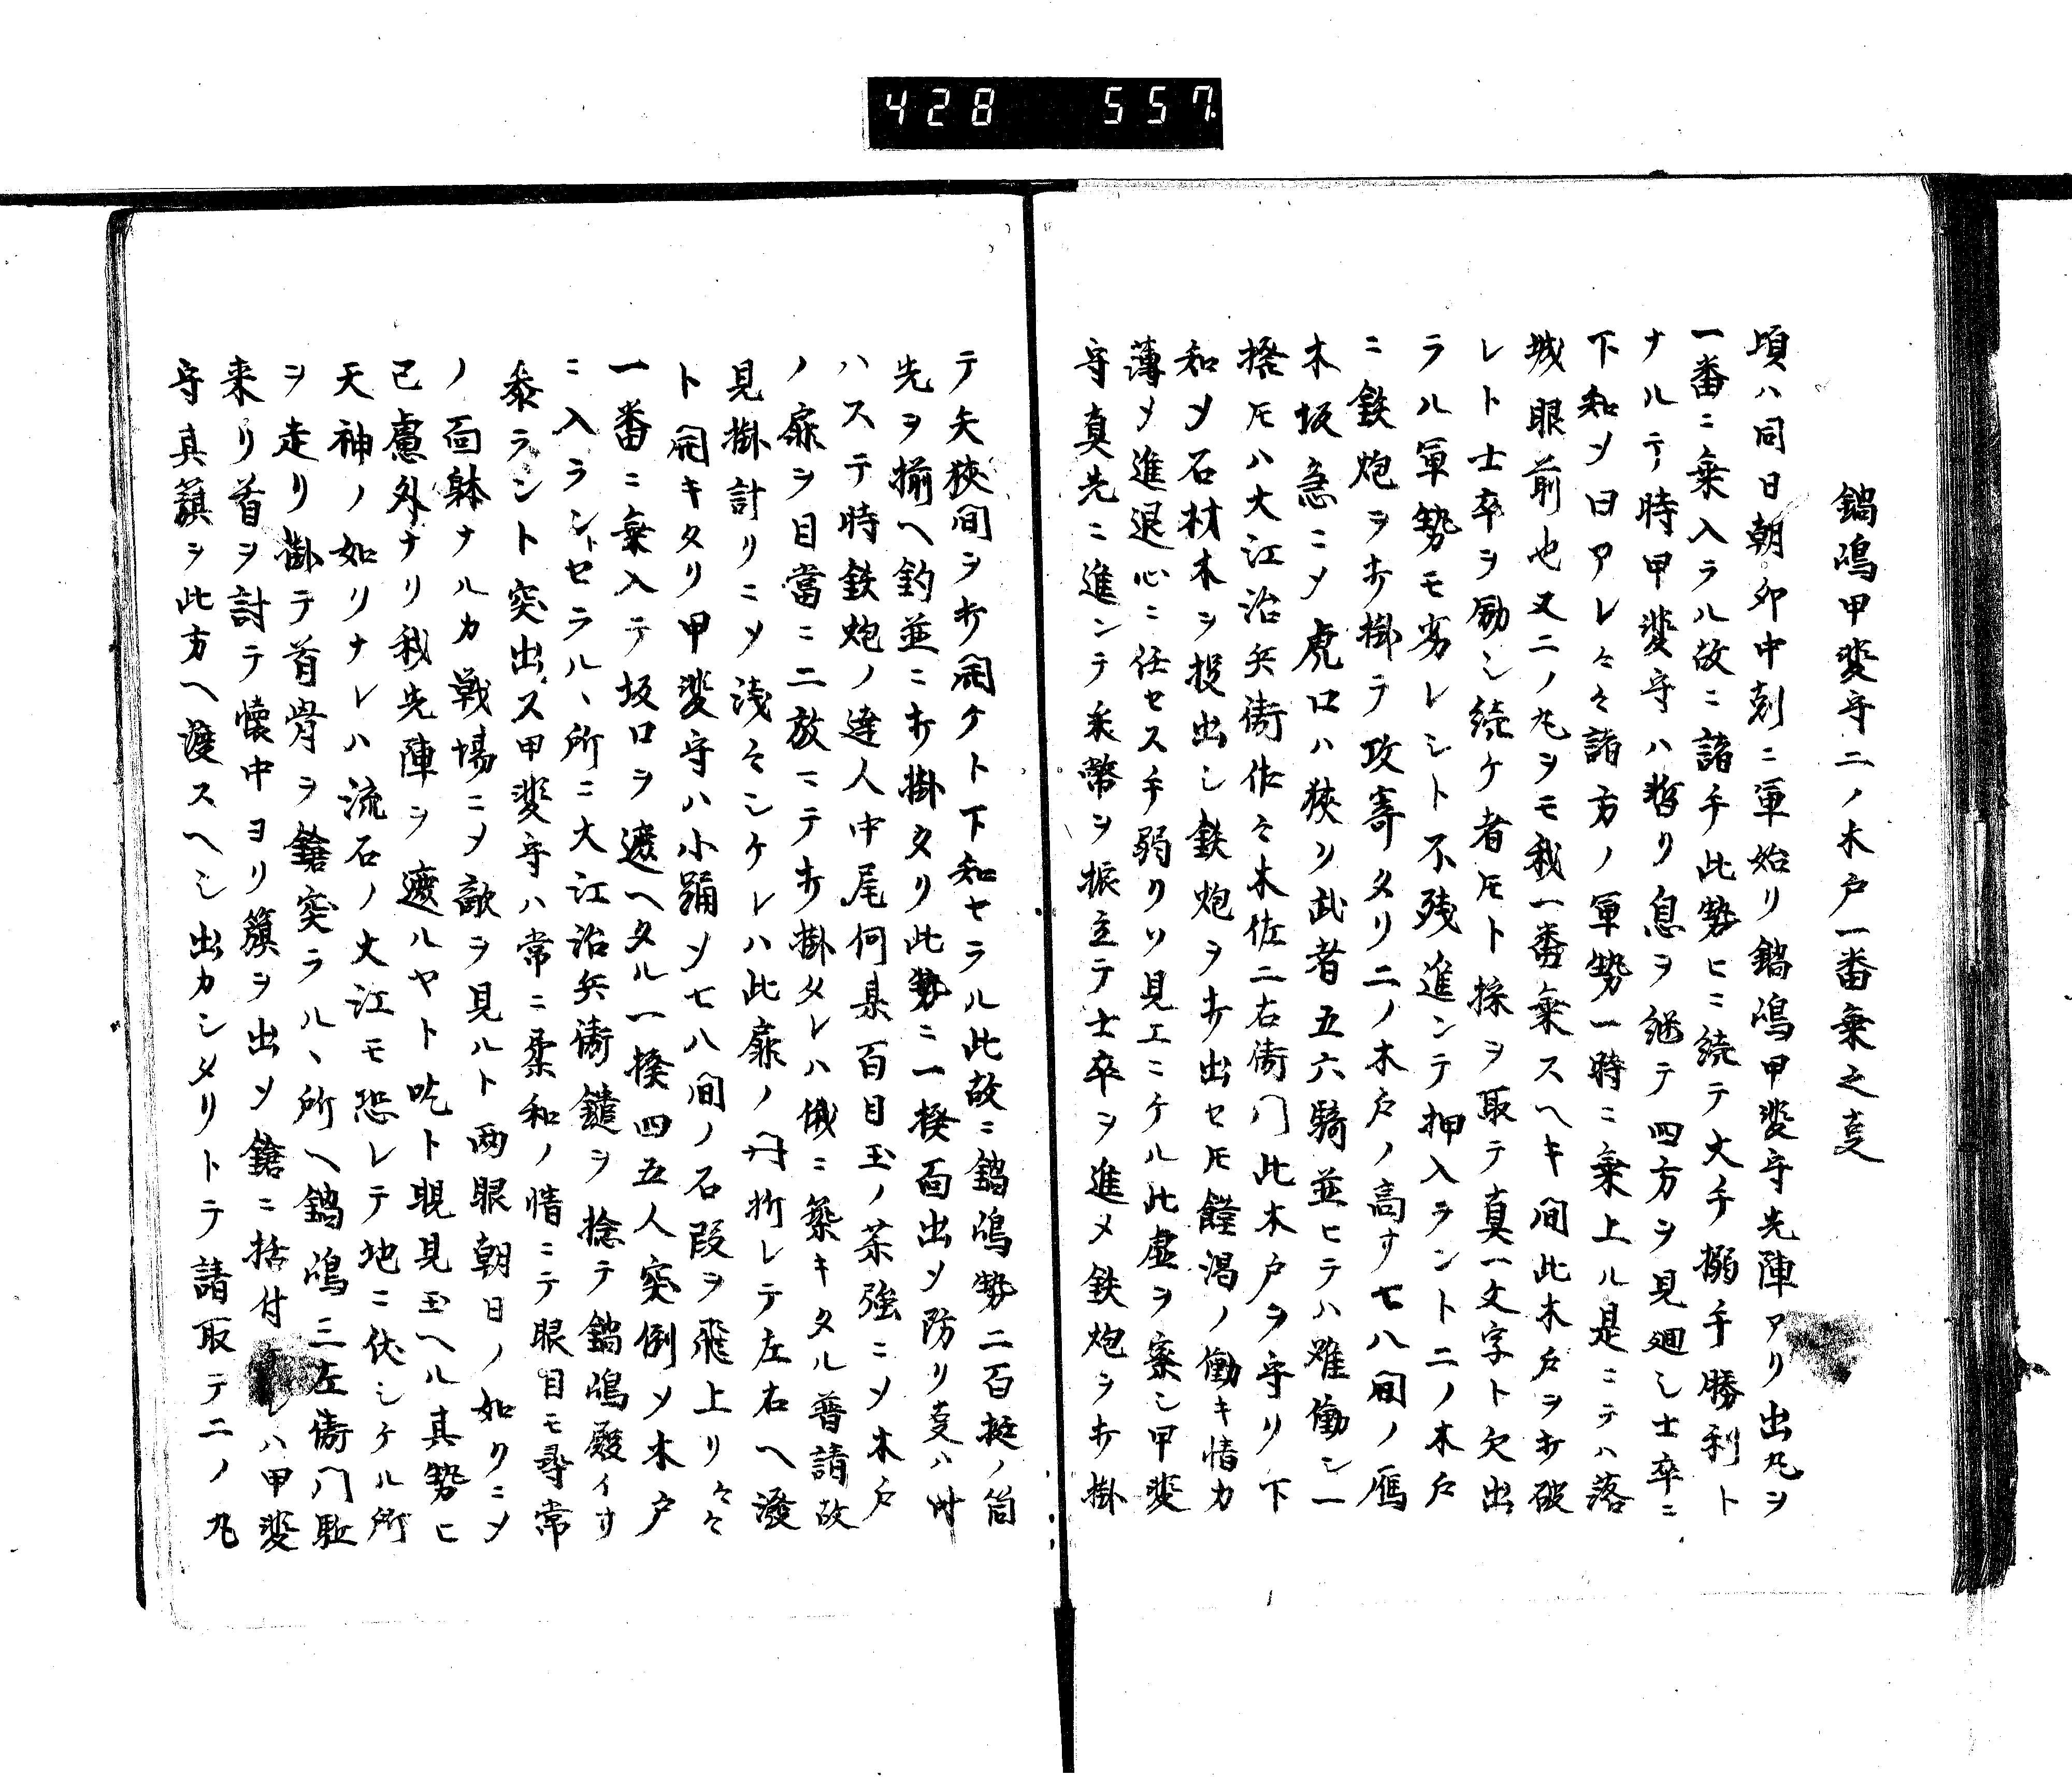 428 557
鍋嶋甲斐守二ノ木戸一番乗之叓
頃ハ同日朝卯中刻ニ軍始リ鍋嶋甲斐守先陣アリ出丸ヲ
一番ニ乗入ラル故ニ諸手此勢ヒニ続テ大手搦手勝利ト
ナルテ時甲斐守ハ暫リ息ヲ継テ四方ヲ見廻シ士卒ニ
下知ソ曰アレ々々諸方ノ軍勢一時ニ乗上ル是ニテハ落
城眼前也又二ノ丸ヲモ我一番乗スヘキ間此木戸ヲ打破
レト士卒ヲ励シ続ケ者圧ト採ヲ取テ真一文字ト欠出
ラル軍勢モ劣レシト不残進ンテ押入ラントニノ木戸
ニ鉄炮ヲ打掛テ攻寄タリ二ノ木戸ノ高サ七八間ノ雁
木坂急ニメ虎口ハ狭リ武者五六騎並ヒテハ難働シ一
揆圧ハ大江治兵衛作々木佐二右衛門此木戸ヲ守リ下
知メ石材木ヲ投出シ鉄炮ヲ打出セ圧饉渇ノ働キ情力
薄メ進退心ニ任セス手弱リソ見エニケル此虚ヲ察シ甲斐
守真先ニ進ンテ釆幣ヲ振立テ士卒ヲ進メ鉄炮ヲ打掛
テ矢狭間ヲ打開ケト下知セラル此故ニ鍋嶋勢二百挺ノ筒
先ヲ揃ヘ釣並ニ打掛タリ此勢ニ一揆面出ソ防リ叓ハ叶
ハステ時鉄炮ノ達人中尾何某百目玉ノ茶強ニメ木戸
ノ扉ヲ目當ニ二放ニテ打掛タレハ俄ニ築キタル普請故
見掛計リニメ浅々シケレハ此扉ノ閂折レテ左右ヘ潑
ト開キタリ甲斐守ハ小踊ソ七八間ノ石段ヲ飛上リ々々
一番ニ乗入テ坂口ヲ遮ヘタル一揆四五人突倒メ木戸
ニ入ラントセラル丶所ニ大江治兵衛鑓ヲ捻テ鍋嶋殿イサ
参ラント突出ス甲斐守ハ常ニ柔和ノ情ニテ眼目モ尋常
ノ面躰ナルカ戦場ニメ敵ヲ見ルト両眼朝日ノ如リニメ
已慮外ナリ我先陣ヲ遮ルヤト吃ト睍見玉ヘル其勢ヒ
天神ノ如リナレハ流石ノ大江モ恐レテ地ニ伏シケル所
ヲ走リ掛テ首骨ヲ鎗突ラル丶所ヘ鍋嶋三左衛門駈
来リ首ヲ討テ懐中ヨリ籏ヲ出メ鎗ニ括付シハ甲斐
守其籏ヲ此方ヘ渡スヘシ出カシメリトテ請取テ二ノ丸